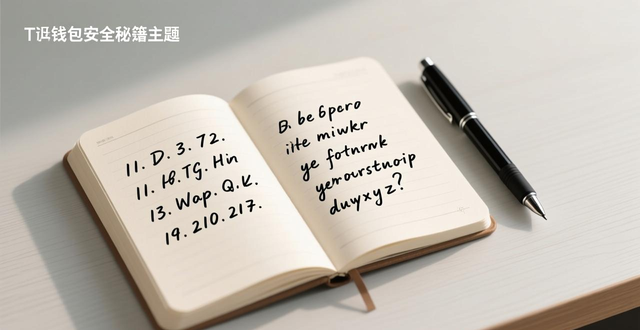 T讴钱包安全秘籍主题
11. D. 3. 72.
11. H.TG. Hin
13. Wap. Q.K.
19. 210. 217.
B. be 6pero
iite miwkr
ye fotnrnk
yerourstnoip
duyxyz?